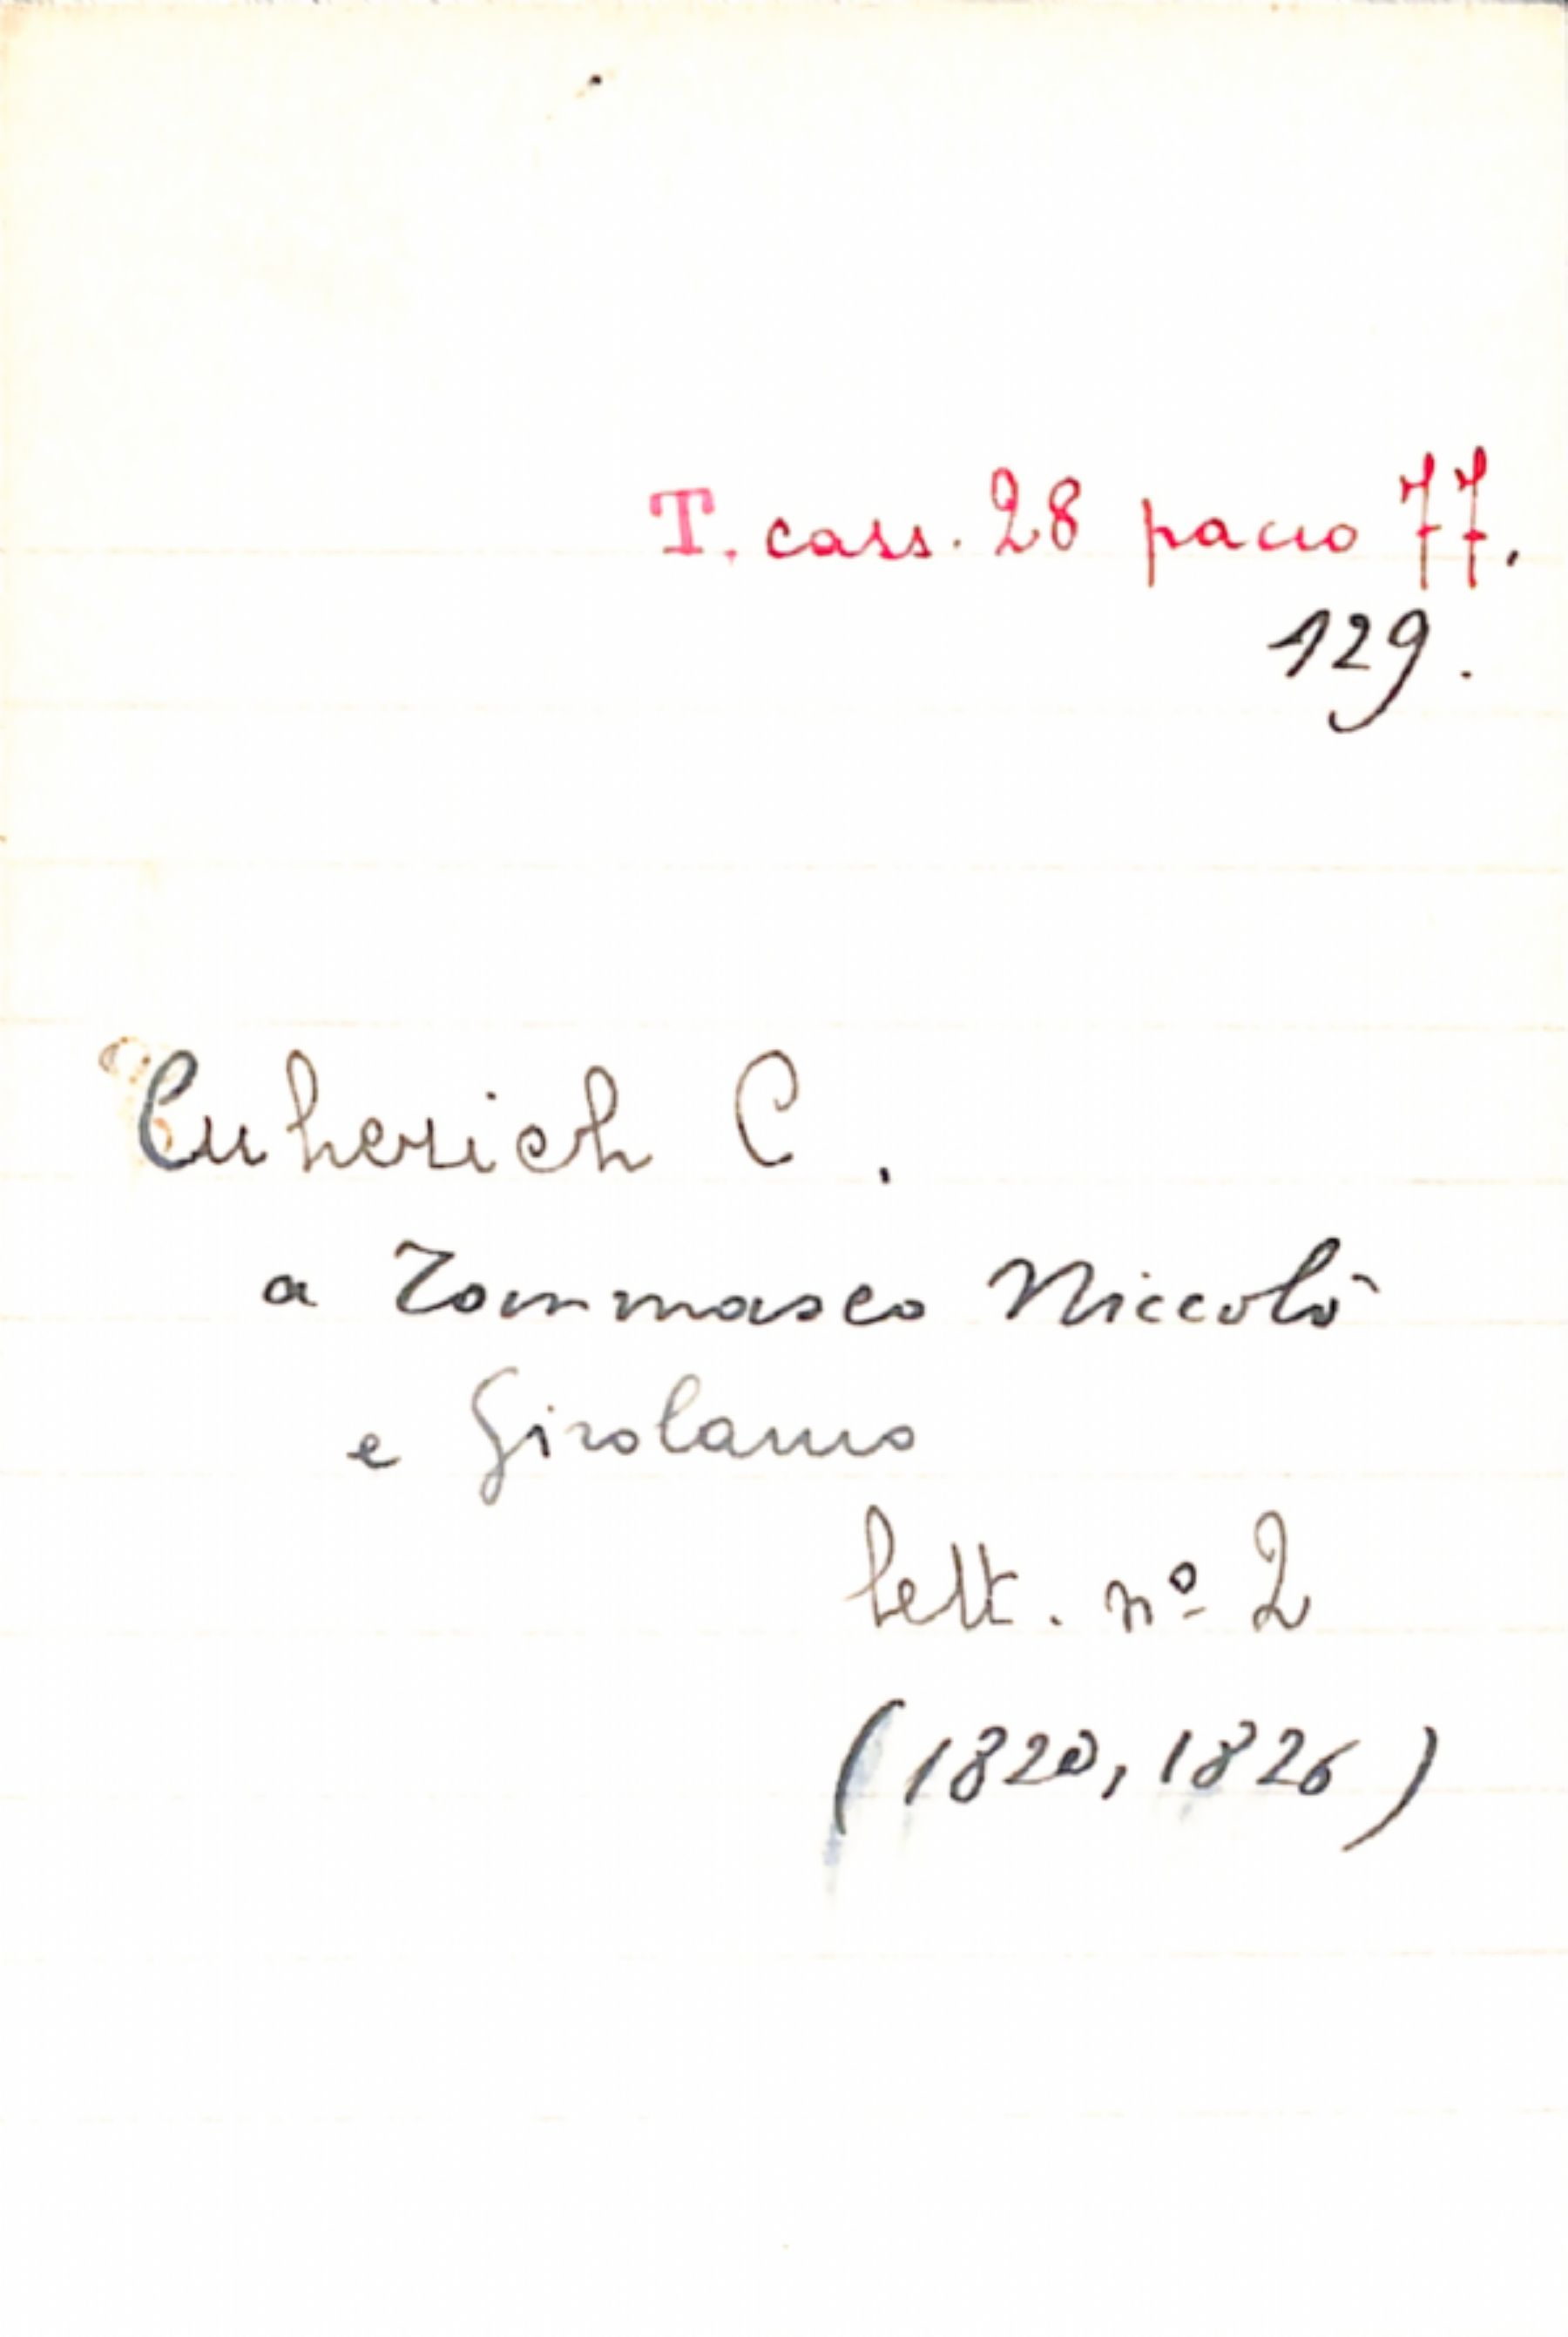 T. cass. 28 pacco 77.
129.
Cuherich C.
a Tommaseo Niccolò
e Girolamo
lett. nº 2
(1820, 1826)